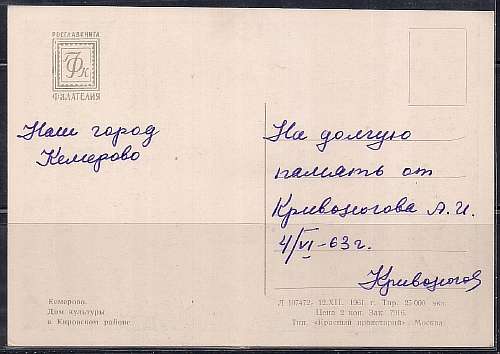 РОСГЛАВКНИГА
ФК
ФИЛАТЕЛИЯ
Наш город
Кемерово
На долгую
память от
Кривоногова А.И.
4/VI-63 г.
Кривоногов
Кемерово.
Дом культуры
в Кировском районе
Л 107472 12.XII. 1961 г. Тир. 25 000 экз.
Цена 2 коп. Зак. 7916.
Тип. «Красный пролетарий». Москва